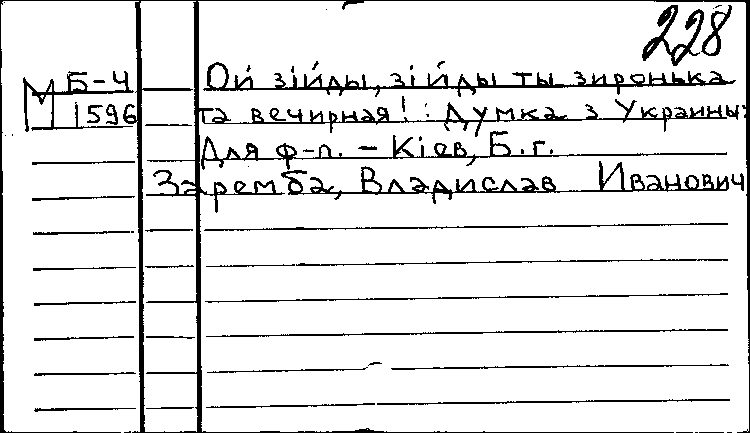 228
М Б-4 Ой зійды, зійды ты зиронька
1596 та вечирная!: Думка з Украины:
Для ф-п. – Кіев, Б.г.
Заремба, Владислав Иванович